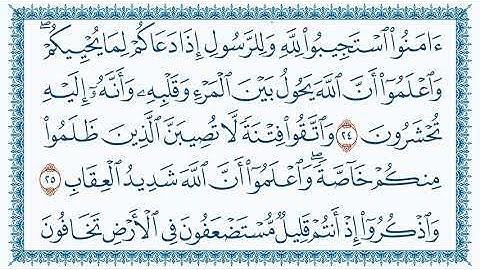 ءَامَنُوا۟ ٱسْتَجِيبُوا۟ لِلَّهِ وَلِلرَّسُولِ إِذَا دَعَاكُمْ لِمَا يُحْيِيكُمْ ۖ
وَٱعْلَمُوٓا۟ أَنَّ ٱللَّهَ يَحُولُ بَيْنَ ٱلْمَرْءِ وَقَلْبِهِۦ وَأَنَّهُۥٓ إِلَيْهِ
تُحْشَرُونَ ٢٤ وَٱتَّقُوا۟ فِتْنَةً لَّا تُصِيبَنَّ ٱلَّذِينَ ظَلَمُوا۟
مِنكُمْ خَآصَّةً ۖ وَٱعْلَمُوٓا۟ أَنَّ ٱللَّهَ شَدِيدُ ٱلْعِقَابِ ٢٥
وَٱذْكُرُوٓا۟ إِذْ أَنتُمْ قَلِيلٌ مُّسْتَضْعَفُونَ فِى ٱلْأَرْضِ تَخَافُونَ